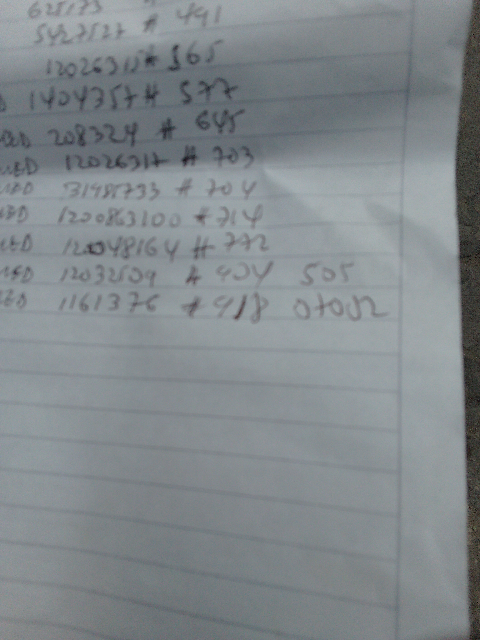 625173 #
5427527 # 491
12026315# 565
1404357# 577
208324 # 645
12026317 # 703
31985733 # 704
1200863100 # 714
12048164 # 772
12032509 # 904 505
1161376 # 918